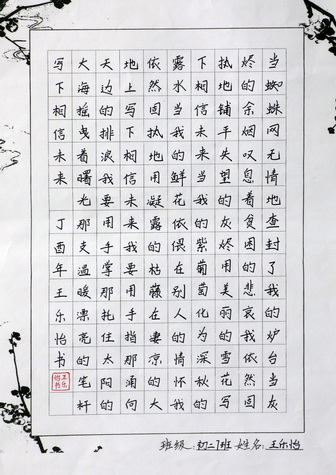 当蜘蛛网无情地查封了我的炉台当灰
烬的余烟叹息着贫困的悲哀我依然固
执地铺平失望的灰烬用美丽的雪花写
下相信未来当我的紫葡萄化为深秋的
露水当我的鲜花依偎在别人的情怀我
依然固执地用凝露的枯藤在凄凉的大
地上写下相信未来我要用手指那涌向
天边的排浪我要用手掌那托住太阳的
大海摇曳着曙光那支温暖漂亮的笔杆
写下相信未来 丁酉年王乐怡书
王乐怡书
班级：初二7班 姓名：王乐怡